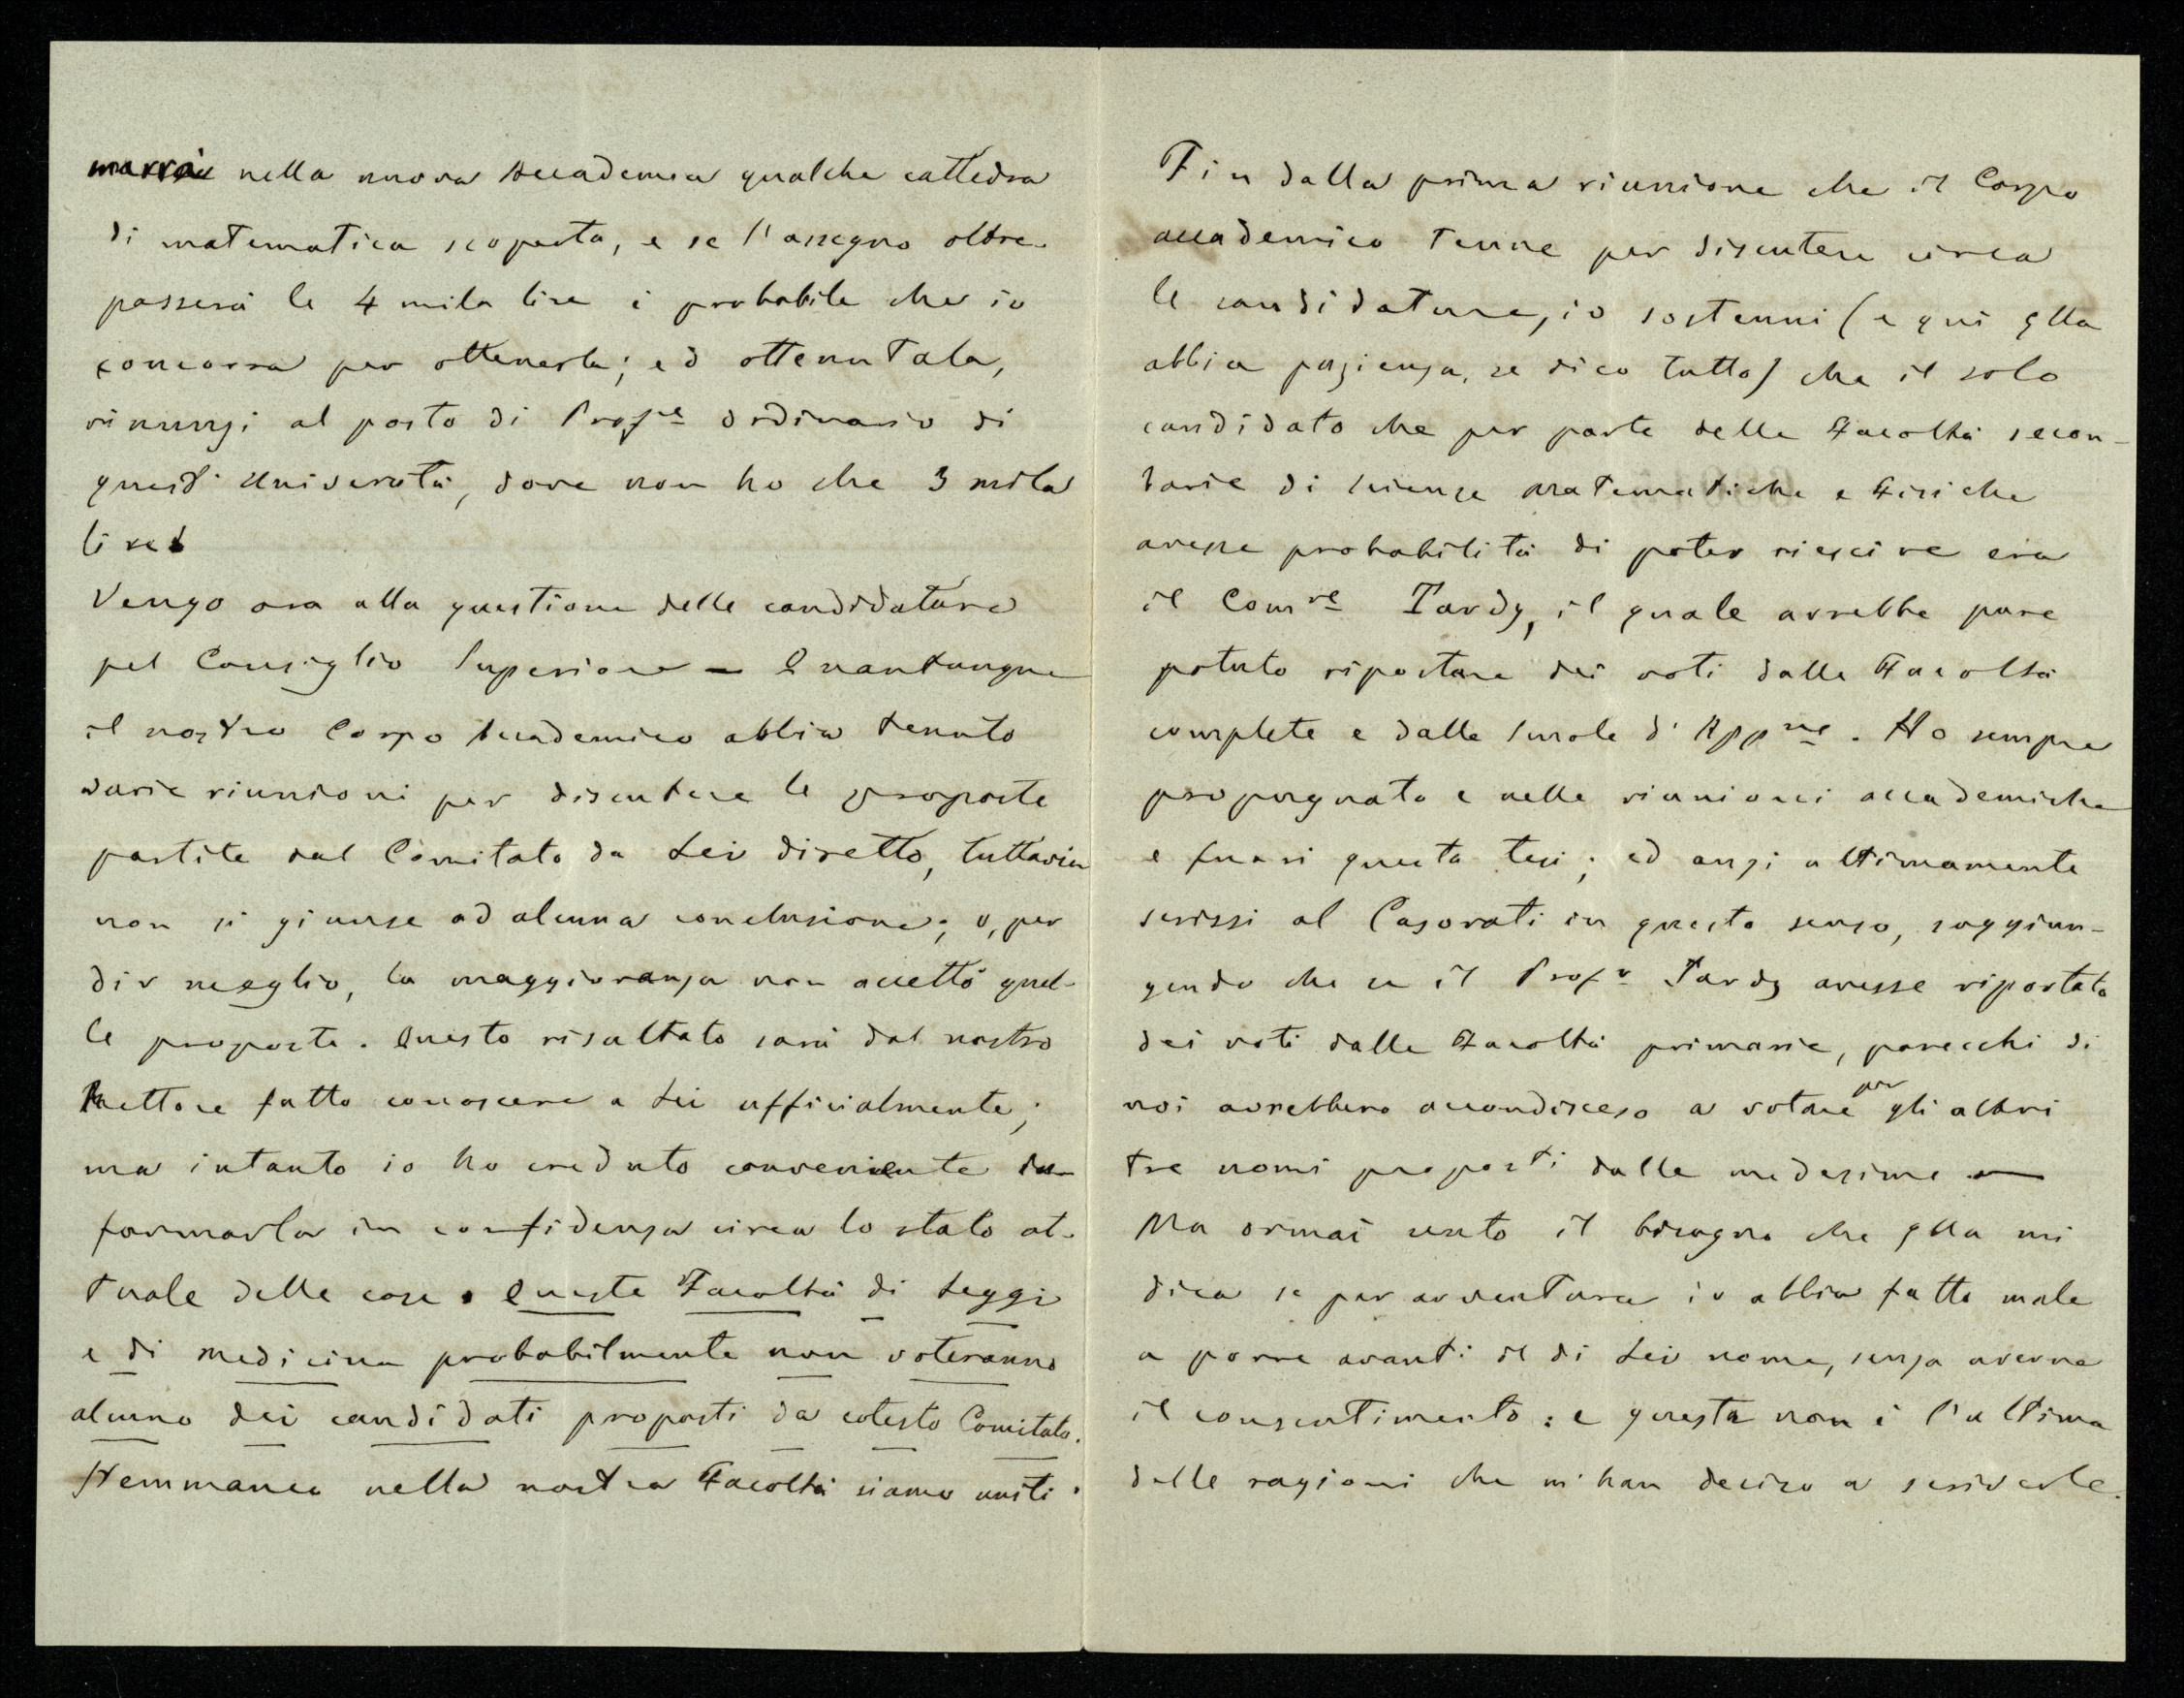 marrà nella nuova Accademia qualche cattedra
di matematica scoperta, e se l'assegno oltre-
passerà le 4 mila lire è probabile che io
concorra per ottenerla; ed ottenutala,
rinunzi al posto di Prof.re ordinario di
quest'Università, dove non ho che 3 mila
lire.
Vengo ora alla questione delle candidature
pel Consiglio Superiore — Quantunque
il nostro Corpo Accademico abbia tenuto
varie riunioni per discutere le proposte
partite dal Comitato da Lei diretto, tuttavia
non si giunse ad alcuna conclusione; o, per
dir meglio, la maggioranza non accettò quel-
le proposte. Questo risultato sarà dal nostro
Rettore fatto conoscere a Lei ufficialmente;
ma intanto io ho creduto conveniente in-
formarla in confidenza circa lo stato at-
tuale delle cose. Queste Facoltà di Leggi
e di medicina probabilmente non voteranno
alcuno dei candidati proposti da cotesto Comitato.
Nemmanco nella nostra Facoltà siamo uniti.
Fin dalla prima riunione che il Corpo
accademico tenne per discutere circa
le candidature, io sostenni (e qui Ella
abbia pazienza, se dico tutto) che il solo
candidato che per parte delle Facoltà secon-
darie di Scienze Matematiche e Fisiche
avesse probabilità di poter riescire era
il Com.re Tardy, il quale avrebbe pure
potuto riportare dei voti dalle Facoltà
complete e dalle Scuole d'App.ne. Ho sempre
propugnato e nelle riunioni accademiche
e fuori questa tesi; ed anzi ultimamente
scrissi al Casorati in questo senso, soggiun-
gendo che se il Prof.r Tardy avesse riportato
dei voti dalle Facoltà primarie, parecchi di
noi avrebbero accondisceso a votare per gli altri
tre nomi proposti dalle medesime —
Ma ormai sento il bisogno che Ella mi
dica se per avventura io abbia fatto male
a porre avanti il di Lei nome, senza averne
il consentimento: e questa non è l'ultima
delle ragioni che m'han deciso a scriverle.